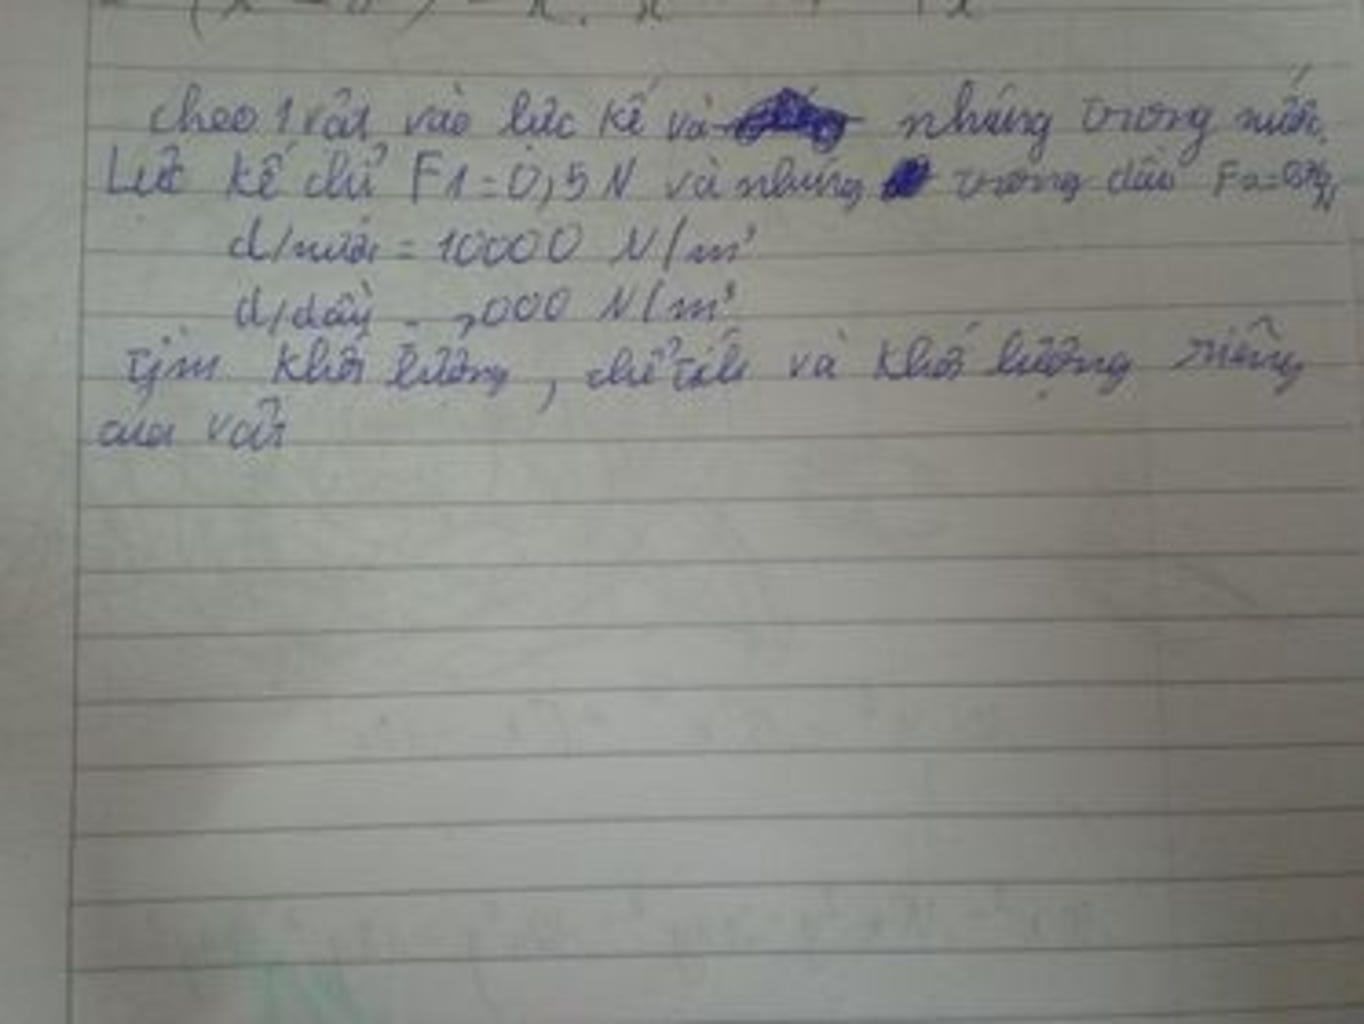 cheo 1 vật vào lực kế và nhúng trong nước.
Lực kế chỉ F1 = 0,5 N và nhúng trong dầu F2 =
d/nước = 10000 N/m³
d/dầu = 000 N/m³
Tìm khối lượng, thể tích và khối lượng riêng
của vật